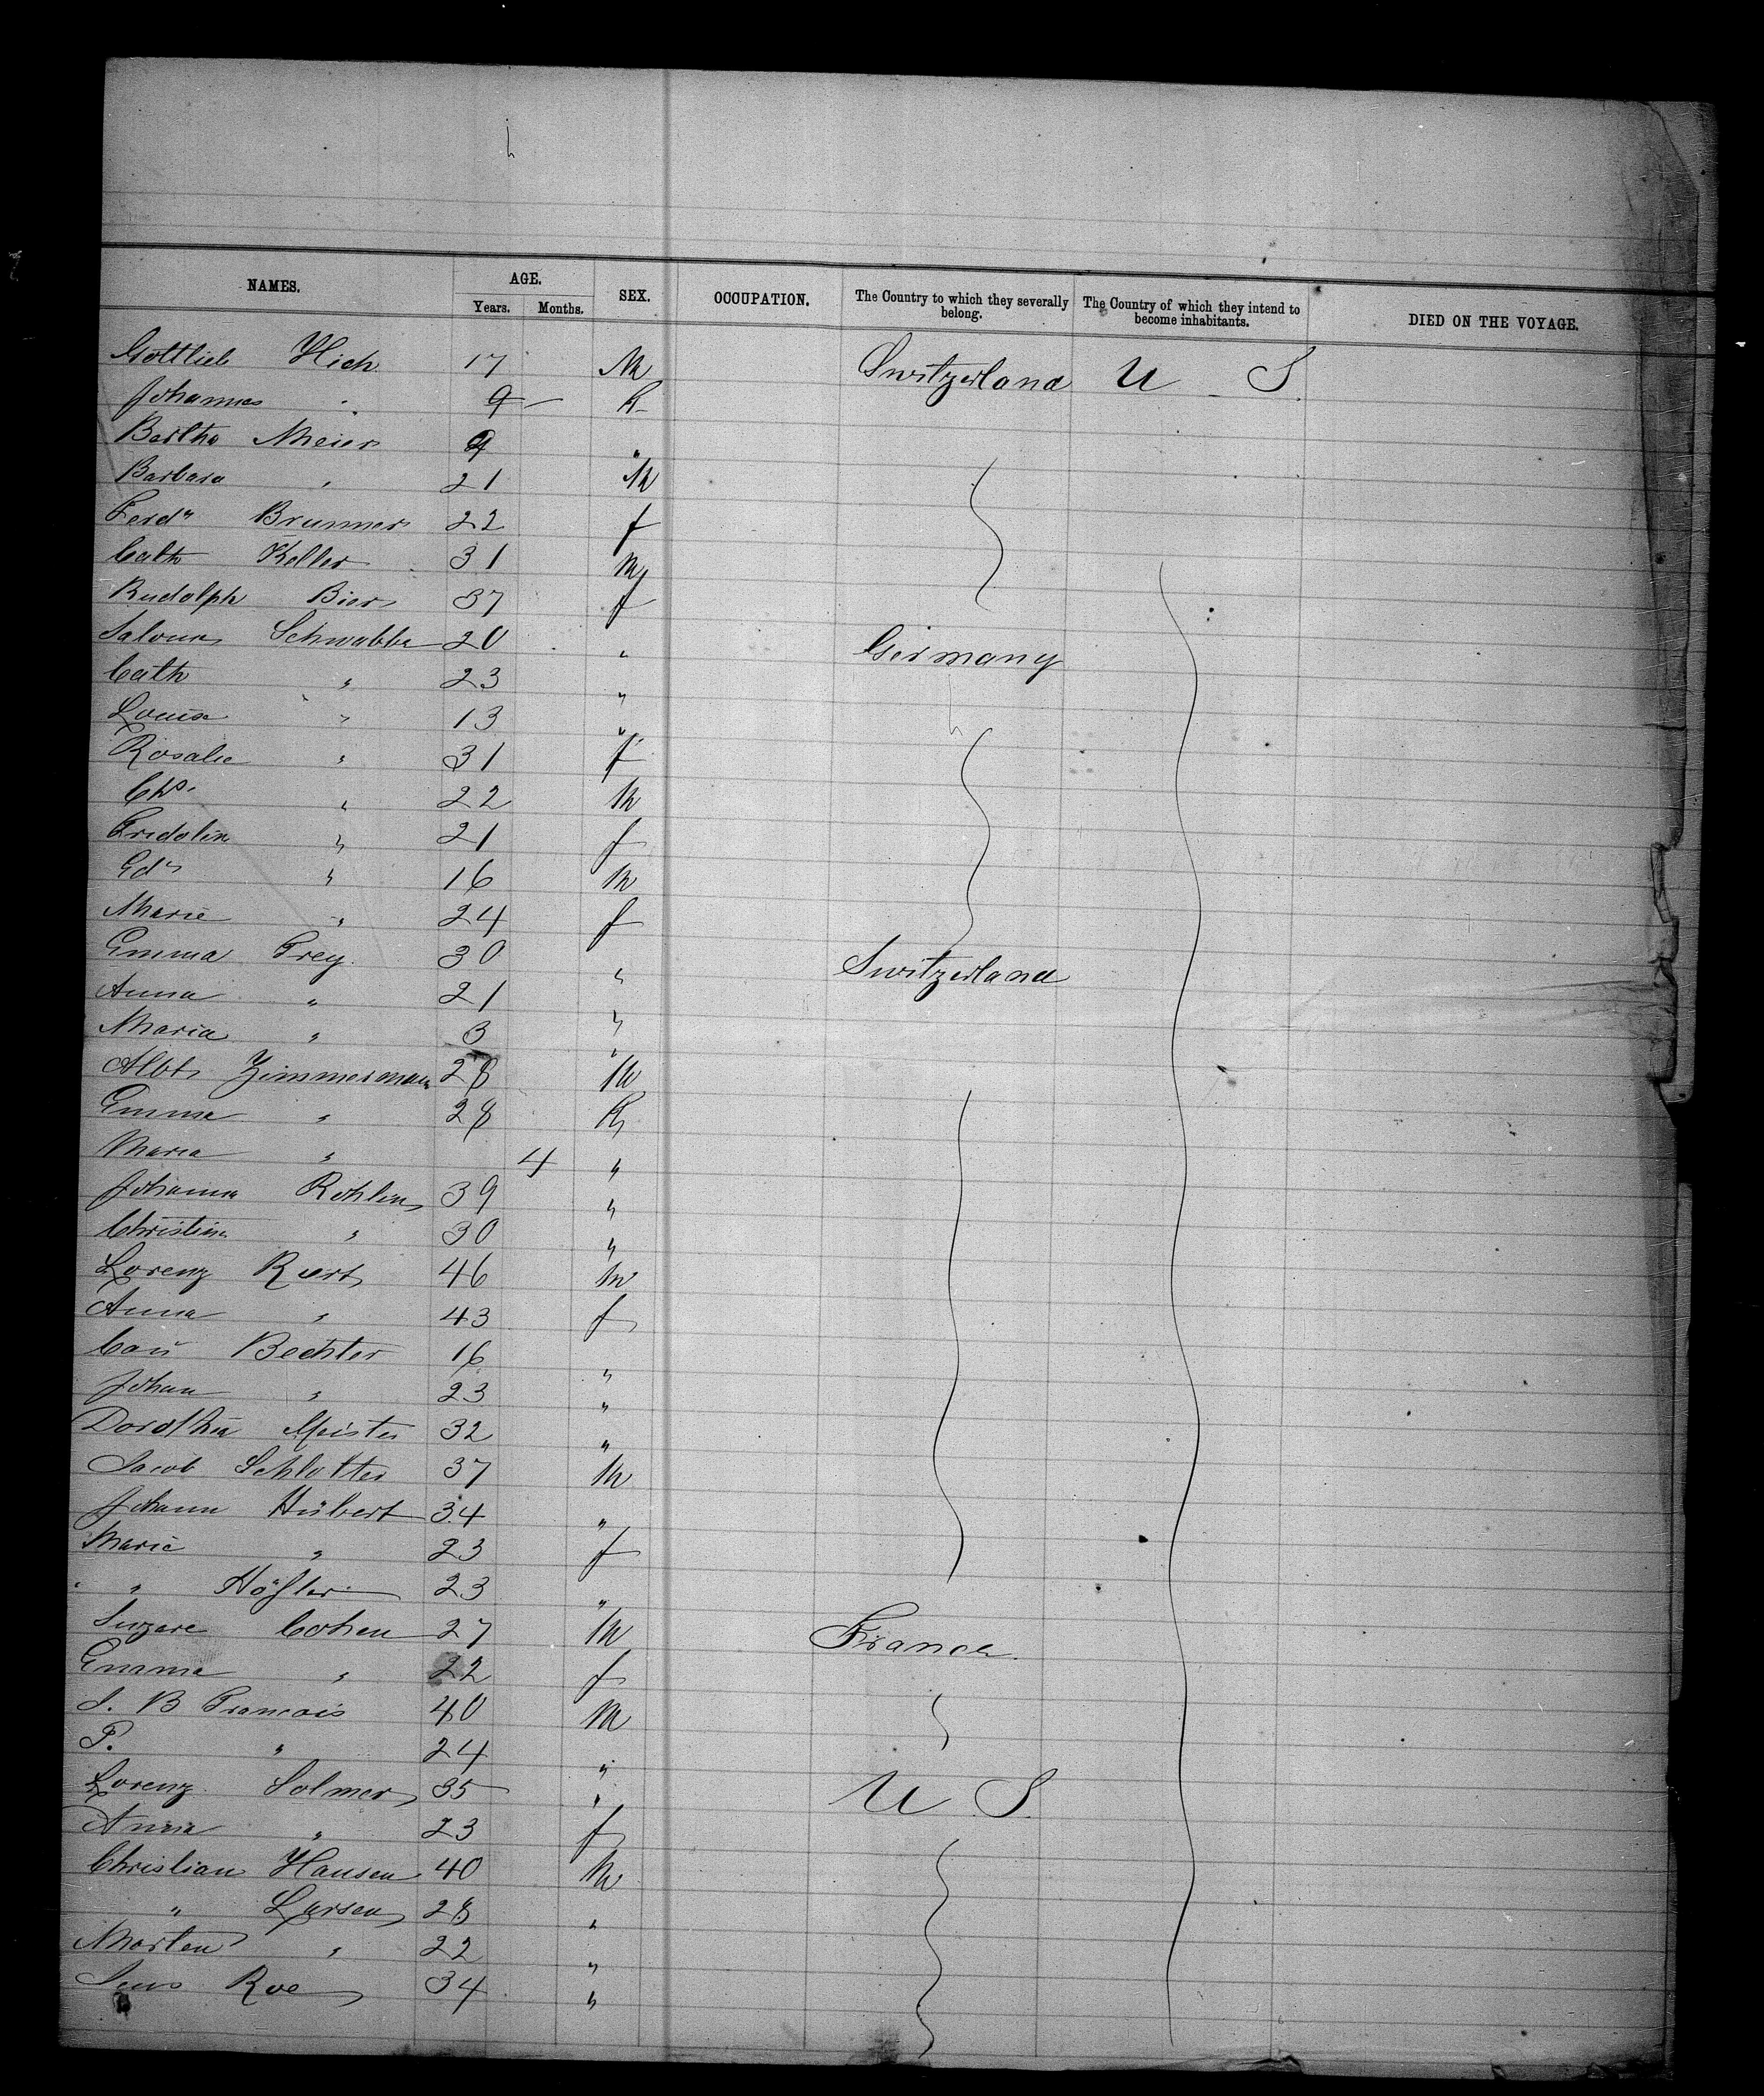 NAMES. AGE. SEX. OCCUPATION. The Country to which they severally belong. The Country of which they intend to become inhabitants. DIED ON THE VOYAGE.
Years. Months.
Gottlieb Hich 17 M Switzerland U S
Johannes " 9
Bertha Meier "
Barbara " 21 M
Ferdn Brunner 22 f
Cath Keller 31
Rudolph Bier 37 f
Saloun Schwabbe 20 " Germany
Cath " 23 "
Louise " 13 "
Rosalie " 31 f
Chs. " 22 M
Fridolin " 21 f
Edn " 16 M
Marie " 24 f
Emma Frey 30 " Switzerland
Anna " 21 "
Maria " 3 "
Albt Zimmermann 28 M
Emma " 28
Maria " 4 "
Johanna Rohlin 39 "
Christina " 30 "
Lorenz Rüert 46 M
Anna " 43 f
Bechter 16 "
Johan " 23 "
Dorothea Meister 32 "
Jacob Schlotter 37 M
Johann Hübert 34 "
Marie " 23 f
" Höfler 23 "
Cohen 27 M France
Emma " 22 f
J. B Francois 40 M
P. " 24 "
Lorenz Solmer 35 " U S
Anna " 23 f
Christian Hansen 40 M
" Larsen 28 "
Morten " 22 "
Jens Roe 34 "